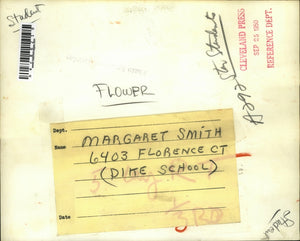 Student
CLEVELAND PRESS
SEP 25 1960
REFERENCE DEPT.
FLOWER
Dept.
Name
MARGARET SMITH
6403 FLORENCE CT
(DIKE SCHOOL)
3RD
Date
Student